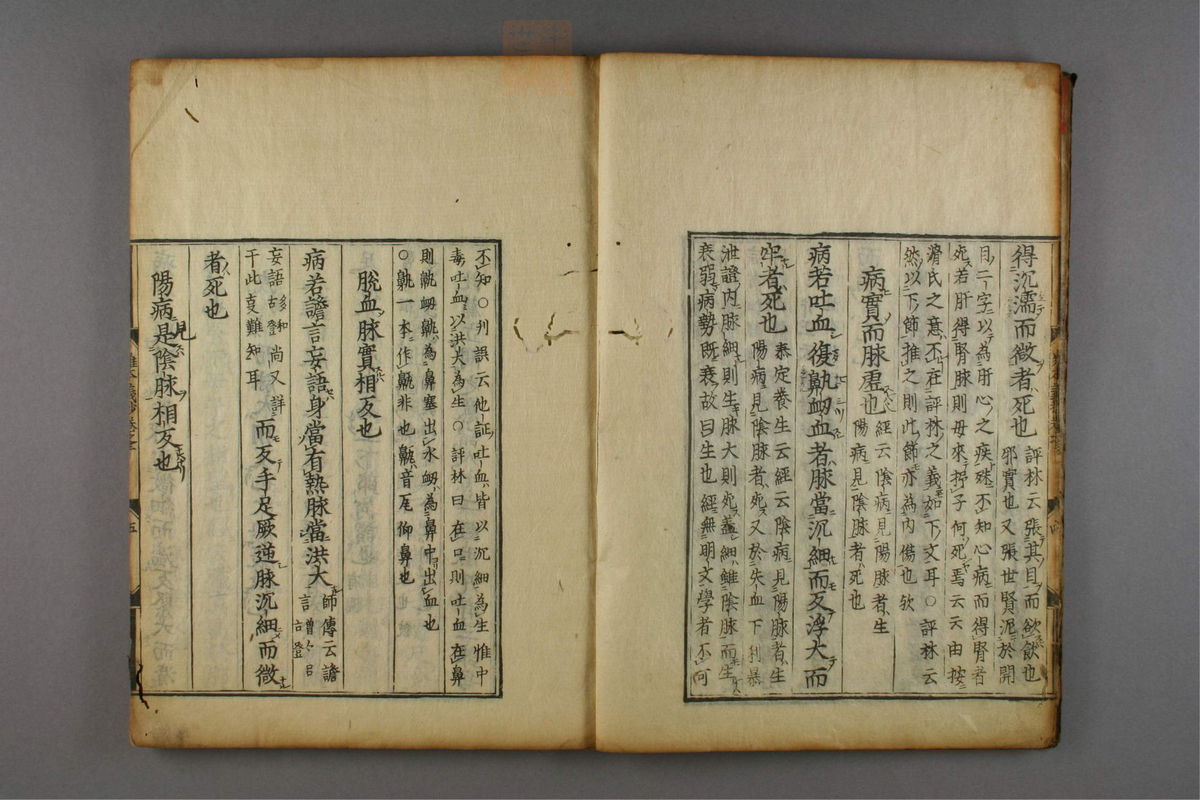 得沉濡而微者死也
評林云張其目而欲飲也
邪實也又張世賢泥於開
目二字以為肝心之疾殊不知心病而得腎者
死若肝得腎脉則母來扶子何死焉云云由按
滑氏之意不在評林之義如下文耳○評林云
然以下節推之則此節亦為内傷也欤
病實而脉虚也
經云陰病見陽脉者生
陽病見陰脉者死也
病若吐血復鼽衂血者脉當沉細而反浮大而
牢者死也
泰定養生云經云陰病見陽脉者生
陽病見陰脉者死又於失血下利暴
泄證内脉細則生脉大則死蓋細雖陰脉而生
衰弱病勢既衰故曰生也經無明文學者不可
不知○刋誤云他証吐血皆以沉細為生惟中
毒吐血以洪大為生○評林曰在口則吐血在鼻
則鼽衂鼽為鼻塞出水衂為鼻中出血也
○鼽一本作鼽非也鼽音尻仰鼻也
脱血脉實相反也
病若譫言妄語身當有熱脉當洪大
師傳云譫
言
妄語
尚又詳
于此
難知耳
而反手足厥逆脉沉細而微
者死也
陽病見是陰脉相反也
五